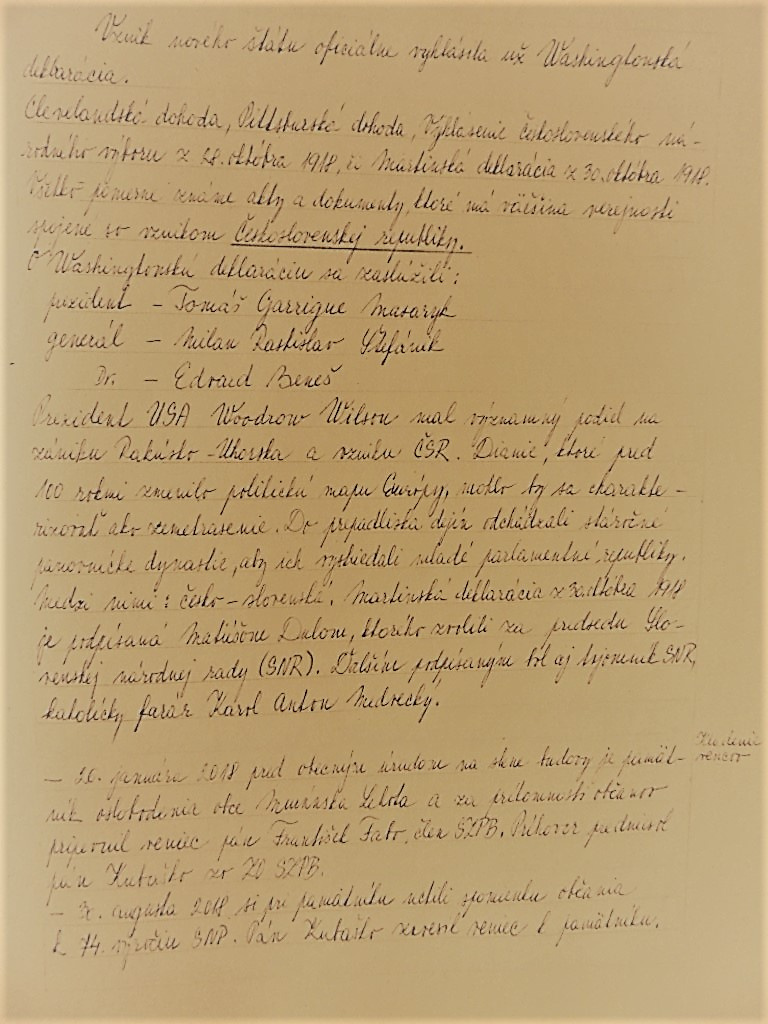 Vznik nového štátu oficiálne vyhlásila už Washingtonská
deklarácia.
Clevelandská dohoda, Pittsburská dohoda, Vyhlásenie československého ná-
rodného výboru z 28. októbra 1918, či Martinská deklarácia z 30. októbra 1918.
Všetko pomerne známe akty a dokumenty, ktoré má väčšina verejnosti
spojené so vznikom Československej republiky.
O Washingtonskú deklaráciu sa zaslúžili:
prezident – Tomáš Garrigue Masaryk
generál – Milan Rastislav Štefánik
Dr. – Edvard Beneš
Prezident USA Woodrow Wilson mal významný podiel na
zániku Rakúsko-Uhorska a vzniku ČSR. Dianie, ktoré pred
100 rokmi zmenilo politickú mapu Európy, mohlo by sa charakte-
rizovať ako zemetrasenie. Do prepadliska dejín odchádzali stáročné
panovnícke dynastie, aby ich vystriedali mladé parlamentné republiky.
Medzi nimi: česko-slovenská. Martinská deklarácia z 30. októbra 1918
je podpísaná Matúšom Dulom, ktorého zvolili za predsedu Slo-
venskej národnej rady (SNR). Ďalším podpísaným bol aj tajomník SNR,
katolícky farár Karol Anton Medvecký.
Kladenie
vencov
– 20. januára 2018 pred obecným úradom na stene budovy je pamät-
ník oslobodenia obce Muránska Lehota a za prítomnosti občanov
pripevnil veniec pán František Fabo, člen SZPB. Príhovor predniesol
pán Kubaško zo ZO SZPB.
– augusta 2018 si pri pamätníku uctili spomienku občania
k 74. výročiu SNP. Pán Kubaško zavesil veniec k pamätníku.